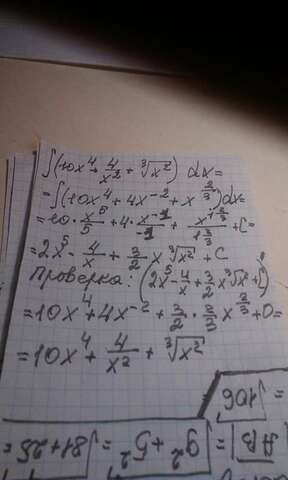 ∫(10x⁴ + 4/x² + ∛x²) dx =
= ∫(10x⁴ + 4x⁻² + x^(2/3))dx =
= 10 · x⁵/5 + 4 · x⁻¹/-1 + x^(1 2/3)/(1 2/3) + C =
= 2x⁵ - 4/x + 3/2 x ∛x² + C
Проверка: (2x⁵ - 4/x + 3/2 x ∛x² + C)
= 10x⁴ + 4x⁻² + 3/2 · 2/3 x^(2/3) + 0 =
= 10x⁴ + 4/x² + ∛x²
|AB| = √9² + 5² = √81 + 25 =
= √106